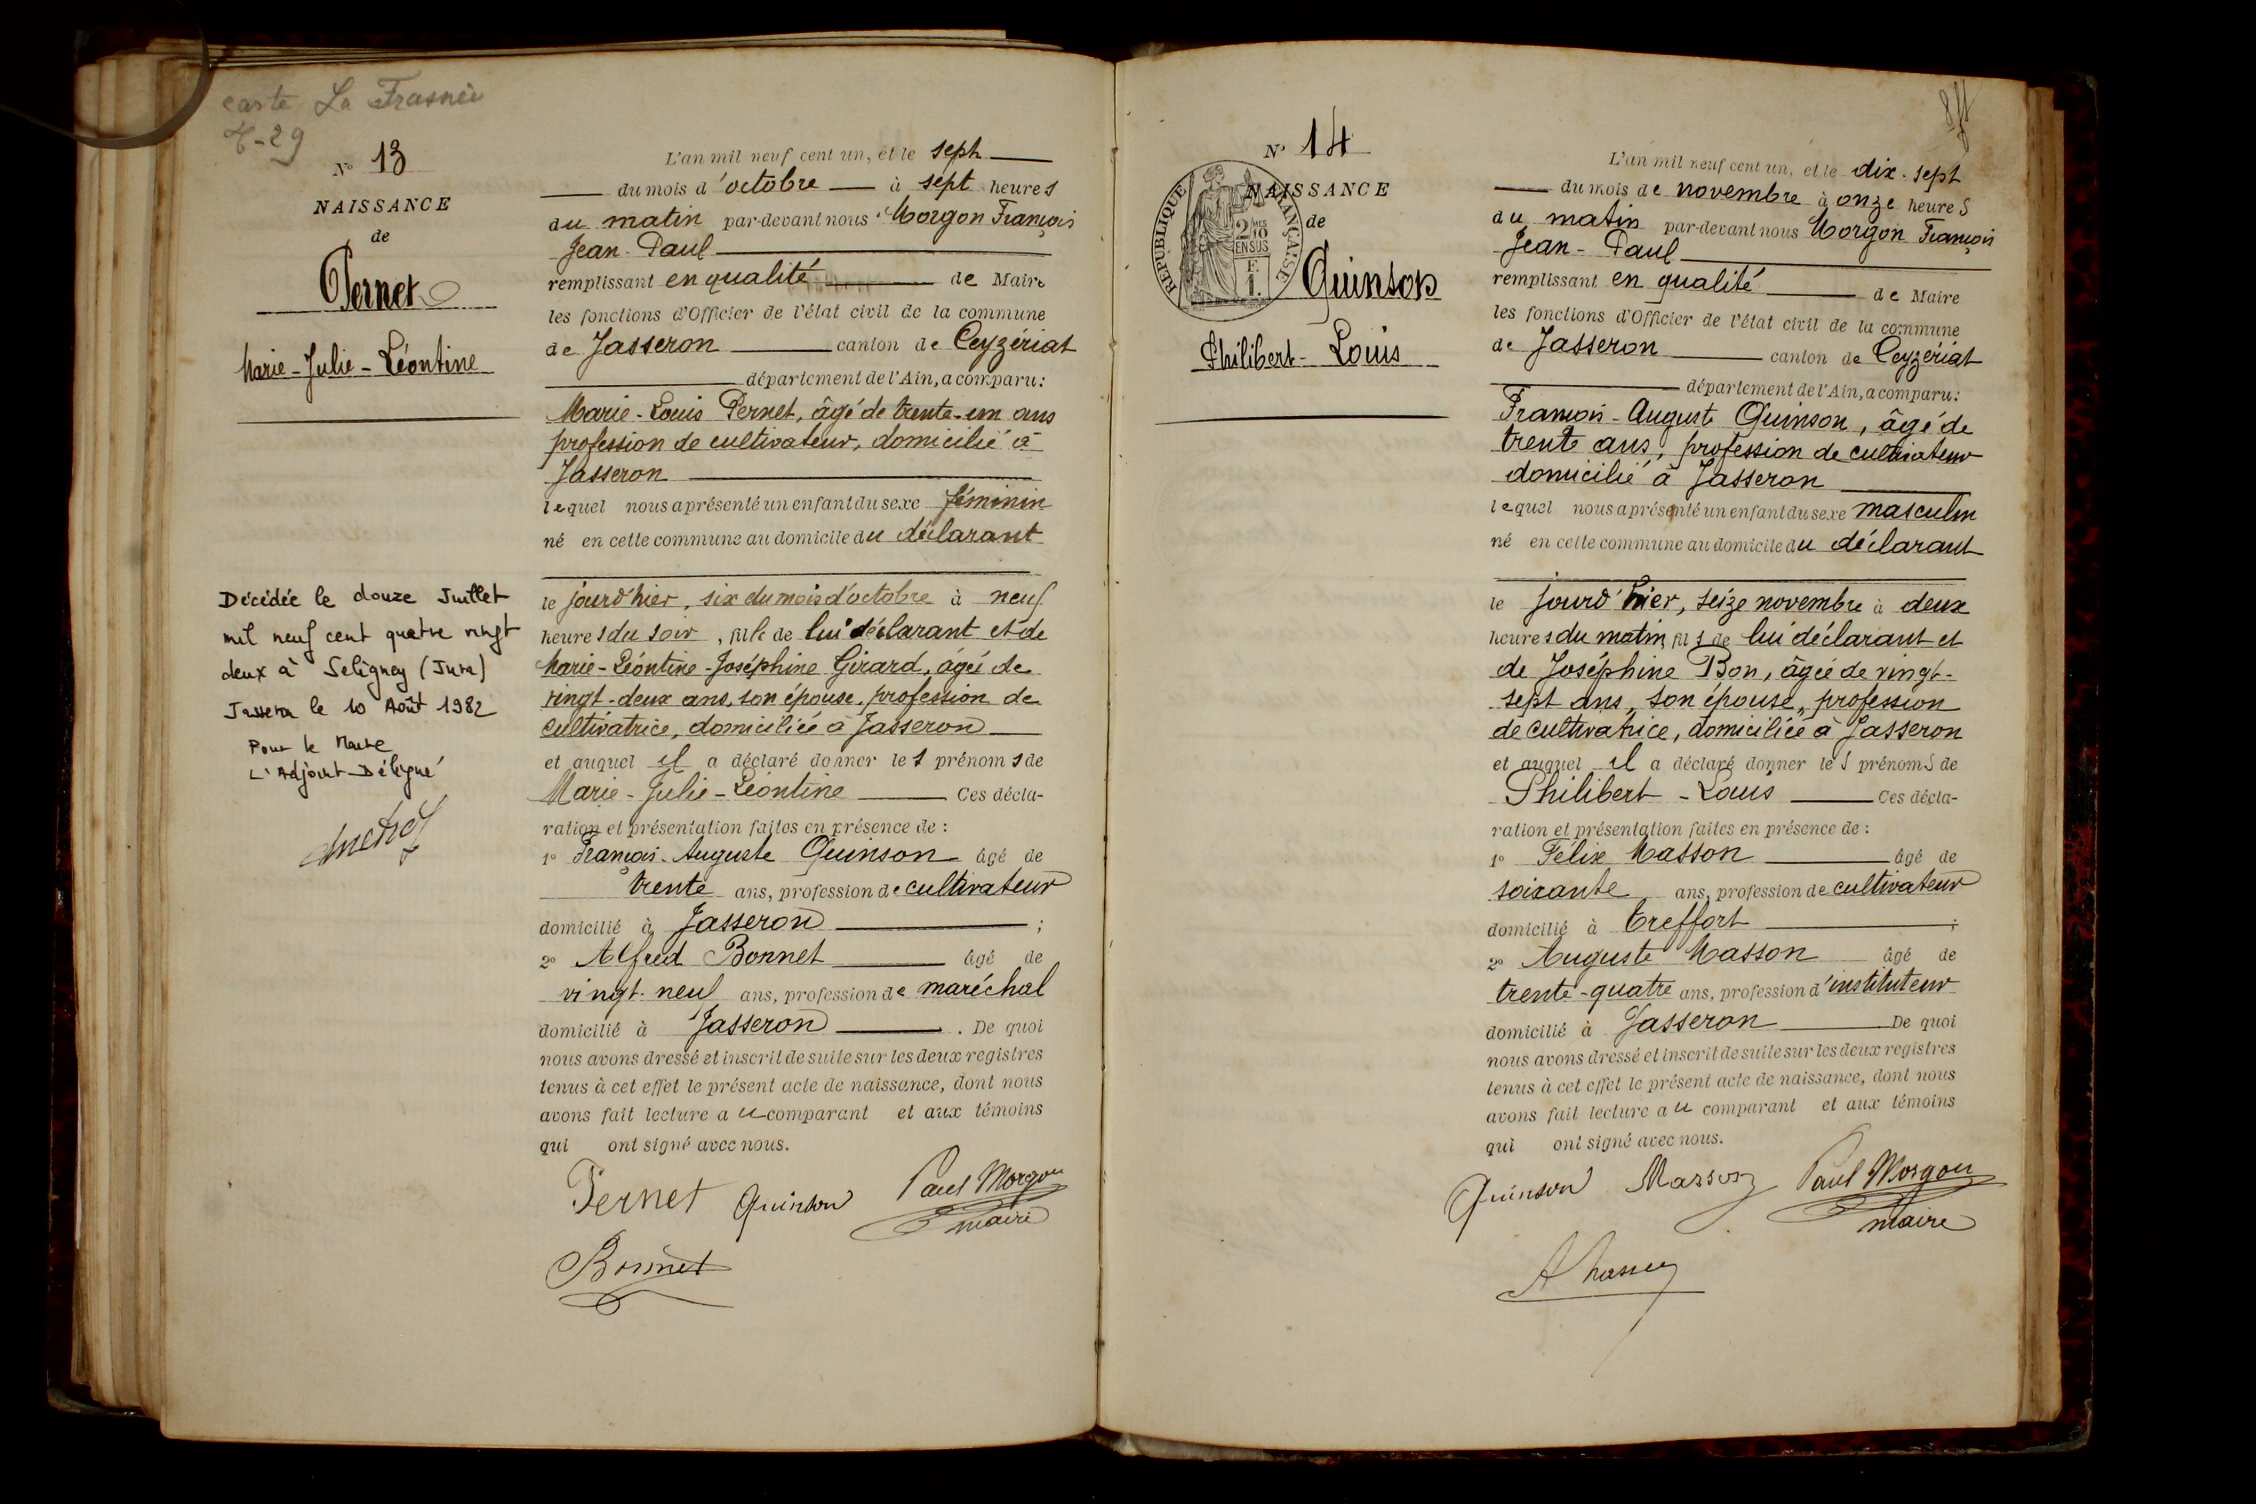 carte La Frasnée
N° 13
NAISSANCE
de
Pernet
Marie-Julie-Léontine
Décédée le douze Juillet
mil neuf cent quatre vingt
deux à Seligney (Jura)
Jasseron le 10 Août 1982
Pour le Maire
L'Adjoint-Délégué
L'an mil neuf cent un, et le sept
du mois d'octobre à sept heures
du matin par-devant nous Morgon François
Jean-Paul
remplissant en qualité de Maire
les fonctions d'Officier de l'état civil de la commune
de Jasseron canton de Ceyzériat
département de l'Ain, a comparu:
Marie-Louis Pernet, âgé de trente-un ans
profession de cultivateur, domicilié à
Jasseron
lequel nous a présenté un enfant du sexe féminin
né en cette commune au domicile du déclarant
le jourd'hier, six du mois d'octobre à neuf
heures du soir, fille de lui déclarant et de
Marie-Léontine-Joséphine Girard, âgée de
vingt-deux ans, son épouse, profession de
cultivatrice, domiciliée à Jasseron
et auquel il a déclaré donner les prénoms de
Marie-Julie-Léontine Ces décla-
ration et présentation faites en présence de :
1° François-Auguste Quinson âgé de
trente ans, profession de cultivateur
domicilié à Jasseron ;
2° Alfred Bonnet âgé de
vingt-neuf ans, profession de maréchal
domicilié à Jasseron . De quoi
nous avons dressé et inscrit de suite sur les deux registres
tenus à cet effet le présent acte de naissance, dont nous
avons fait lecture au comparant et aux témoins
qui ont signé avec nous.
Pernet Quinson Paul Morgon
maire
Bonnet
N° 14
NAISSANCE
de
RÉPUBLIQUE FRANÇAISE
2/10 EN SUS
Quinson
Philibert-Louis
L'an mil neuf cent un, et le dix-sept
du mois de novembre à onze heures
du matin par-devant nous Morgon François
Jean-Paul
remplissant en qualité de Maire
les fonctions d'Officier de l'état civil de la commune
de Jasseron canton de Ceyzériat
département de l'Ain, a comparu:
François-Auguste Quinson, âgé de
trente ans, profession de cultivateur
domicilié à Jasseron
lequel nous a présenté un enfant du sexe masculin
né en cette commune au domicile du déclarant
le jourd'hier, seize novembre à deux
heures du matin, fils de lui déclarant et
de Joséphine Bon, âgée de vingt-
sept ans, son épouse, profession
de cultivatrice, domiciliée à Jasseron
et auquel il a déclaré donner les prénoms de
Philibert-Louis Ces décla-
ration et présentation faites en présence de :
1° Félix Masson âgé de
soixante ans, profession de cultivateur
domicilié à Treffort ;
2° Auguste Masson âgé de
trente-quatre ans, profession d'instituteur
domicilié à Jasseron De quoi
nous avons dressé et inscrit de suite sur les deux registres
tenus à cet effet le présent acte de naissance, dont nous
avons fait lecture au comparant et aux témoins
qui ont signé avec nous.
Quinson Masson Paul Morgon
maire